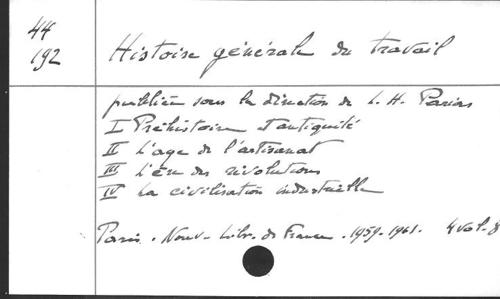 44
192
Histoire générale du travail
publiée sous la direction de L. H. Parias
I Préhistoire et antiquité
II L'age de l'artisanat
III L'ère des révolutions
IV La civilisation industrielle
Paris. Nouv. Libr. de France. 1959-1961. 4 vol. 8